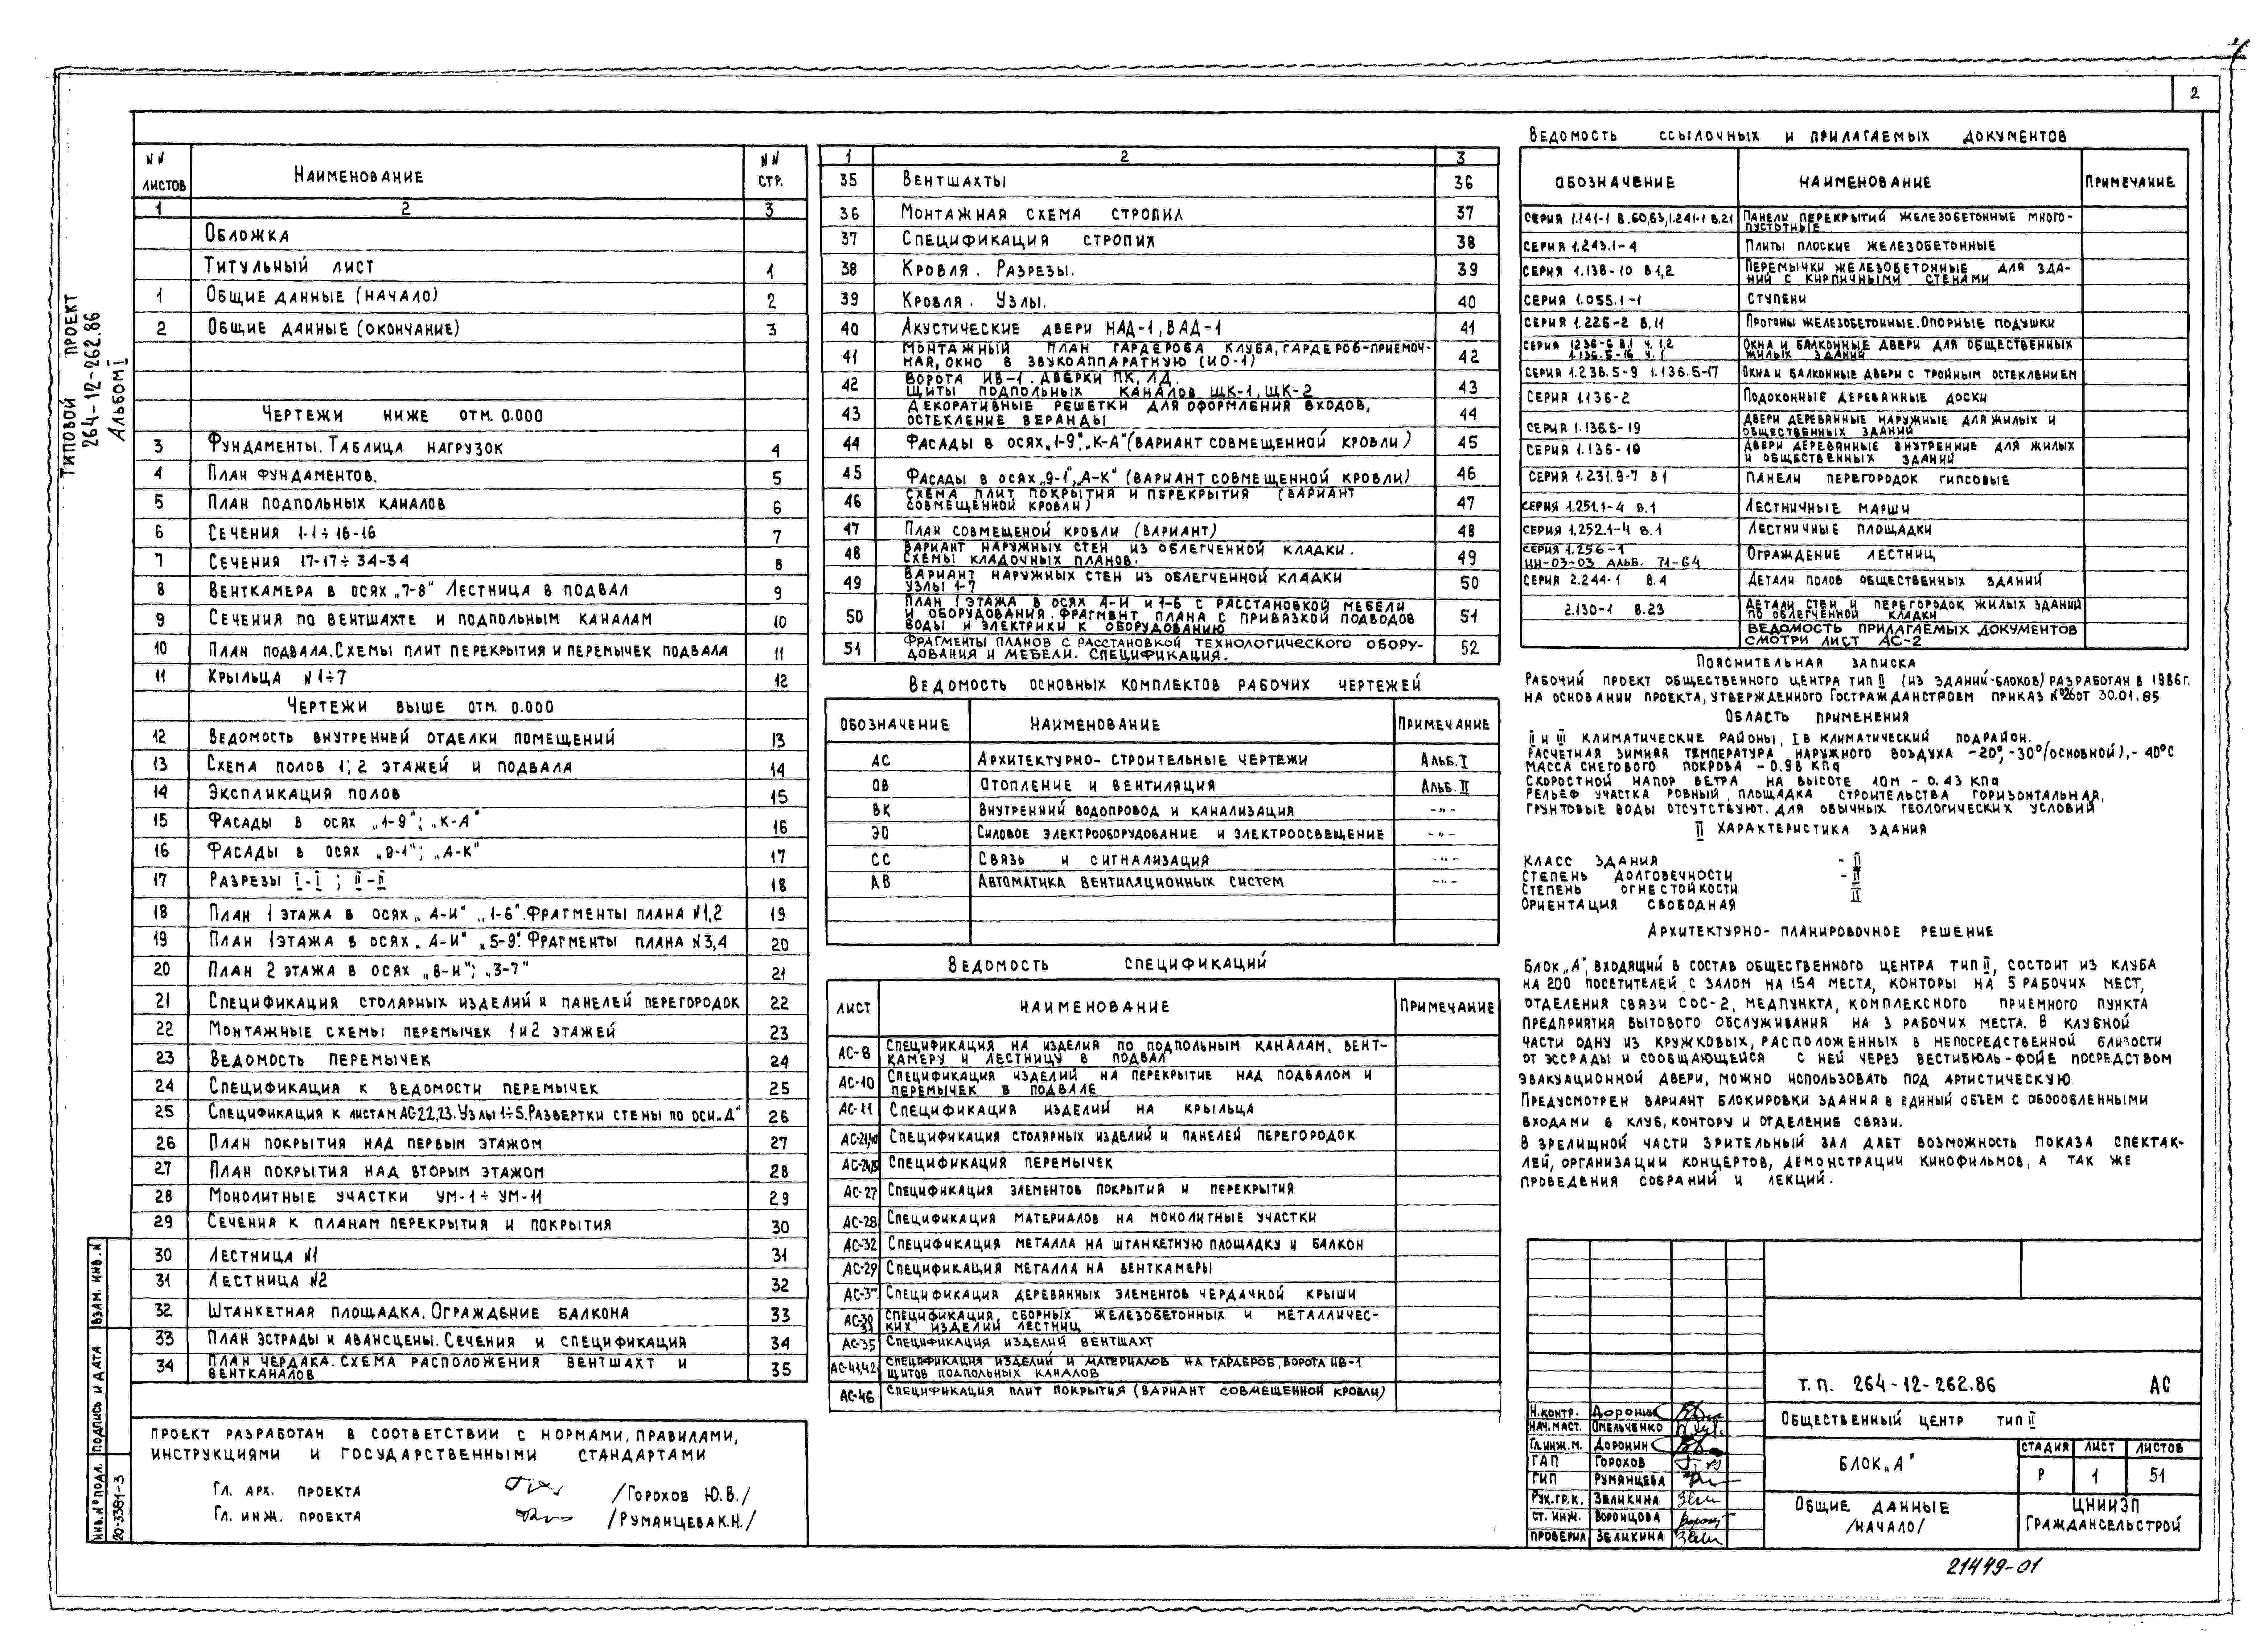 2
ТИПОВОЙ ПРОЕКТ
264-12-262.86
АЛЬБОМ I
NN ЛИСТОВ НАИМЕНОВАНИЕ NN СТР.
1 2 3
ОБЛОЖКА
ТИТУЛЬНЫЙ ЛИСТ 1
1 ОБЩИЕ ДАННЫЕ (НАЧАЛО) 2
2 ОБЩИЕ ДАННЫЕ (ОКОНЧАНИЕ) 3
ЧЕРТЕЖИ НИЖЕ ОТМ. 0.000
3 ФУНДАМЕНТЫ. ТАБЛИЦА НАГРУЗОК 4
4 ПЛАН ФУНДАМЕНТОВ. 5
5 ПЛАН ПОДПОЛЬНЫХ КАНАЛОВ 6
6 СЕЧЕНИЯ 1-1÷16-16 7
7 СЕЧЕНИЯ 17-17÷34-34 8
8 ВЕНТКАМЕРА В ОСЯХ „7-8" ЛЕСТНИЦА В ПОДВАЛ 9
9 СЕЧЕНИЯ ПО ВЕНТШАХТЕ И ПОДПОЛЬНЫМ КАНАЛАМ 10
10 ПЛАН ПОДВАЛА. СХЕМЫ ПЛИТ ПЕРЕКРЫТИЯ И ПЕРЕМЫЧЕК ПОДВАЛА 11
11 КРЫЛЬЦА N1÷7 12
ЧЕРТЕЖИ ВЫШЕ ОТМ. 0.000
12 ВЕДОМОСТЬ ВНУТРЕННЕЙ ОТДЕЛКИ ПОМЕЩЕНИЙ 13
13 СХЕМА ПОЛОВ 1; 2 ЭТАЖЕЙ И ПОДВАЛА 14
14 ЭКСПЛИКАЦИЯ ПОЛОВ 15
15 ФАСАДЫ В ОСЯХ „1-9"; „К-А" 16
16 ФАСАДЫ В ОСЯХ „9-1"; „А-К" 17
17 РАЗРЕЗЫ I-I ; II-II 18
18 ПЛАН 1 ЭТАЖА В ОСЯХ „А-И" „1-6". ФРАГМЕНТЫ ПЛАНА N1,2 19
19 ПЛАН 1 ЭТАЖА В ОСЯХ „А-И" „5-9". ФРАГМЕНТЫ ПЛАНА N3,4 20
20 ПЛАН 2 ЭТАЖА В ОСЯХ „В-И"; „3-7" 21
21 СПЕЦИФИКАЦИЯ СТОЛЯРНЫХ ИЗДЕЛИЙ И ПАНЕЛЕЙ ПЕРЕГОРОДОК 22
22 МОНТАЖНЫЕ СХЕМЫ ПЕРЕМЫЧЕК 1 И 2 ЭТАЖЕЙ 23
23 ВЕДОМОСТЬ ПЕРЕМЫЧЕК 24
24 СПЕЦИФИКАЦИЯ К ВЕДОМОСТИ ПЕРЕМЫЧЕК 25
25 СПЕЦИФИКАЦИЯ К ЛИСТАМ АС-22,23. УЗЛЫ 1÷5. РАЗВЕРТКИ СТЕНЫ ПО ОСИ „Д" 26
26 ПЛАН ПОКРЫТИЯ НАД ПЕРВЫМ ЭТАЖОМ 27
27 ПЛАН ПОКРЫТИЯ НАД ВТОРЫМ ЭТАЖОМ 28
28 МОНОЛИТНЫЕ УЧАСТКИ УМ-1÷УМ-11 29
29 СЕЧЕНИЯ К ПЛАНАМ ПЕРЕКРЫТИЯ И ПОКРЫТИЯ 30
30 ЛЕСТНИЦА N1 31
31 ЛЕСТНИЦА N2 32
32 ШТАНКЕТНАЯ ПЛОЩАДКА. ОГРАЖДЕНИЕ БАЛКОНА 33
33 ПЛАН ЭСТРАДЫ И АВАНСЦЕНЫ. СЕЧЕНИЯ И СПЕЦИФИКАЦИЯ 34
34 ПЛАН ЧЕРДАКА. СХЕМА РАСПОЛОЖЕНИЯ ВЕНТШАХТ И 35
ВЕНТКАНАЛОВ
ПРОЕКТ РАЗРАБОТАН В СООТВЕТСТВИИ С НОРМАМИ, ПРАВИЛАМИ,
ИНСТРУКЦИЯМИ И ГОСУДАРСТВЕННЫМИ СТАНДАРТАМИ
ГЛ. АРХ. ПРОЕКТА /ГОРОХОВ Ю.В./
ГЛ. ИНЖ. ПРОЕКТА /РУМАНЦЕВА К.Н./
ВЗАМ. ИНВ. N
ПОДПИСЬ И ДАТА
ИНВ. N° ПОДЛ.
20-3381-3
1 2 3
35 ВЕНТШАХТЫ 36
36 МОНТАЖНАЯ СХЕМА СТРОПИЛ 37
37 СПЕЦИФИКАЦИЯ СТРОПИЛ 38
38 КРОВЛЯ. РАЗРЕЗЫ. 39
39 КРОВЛЯ. УЗЛЫ. 40
40 АКУСТИЧЕСКИЕ ДВЕРИ НАД-1, ВАД-1 41
41 МОНТАЖНЫЙ ПЛАН ГАРДЕРОБА КЛУБА, ГАРДЕРОБ-ПРИЕМОЧ- 42
НАЯ, ОКНО В ЗВУКОАППАРАТНУЮ (ИО-1)
42 ВОРОТА ИВ-1. ДВЕРКИ ПК, ЛД. 43
ЩИТЫ ПОДПОЛЬНЫХ КАНАЛОВ ЩК-1, ЩК-2
43 ДЕКОРАТИВНЫЕ РЕШЕТКИ ДЛЯ ОФОРМЛЕНИЯ ВХОДОВ, 44
ОСТЕКЛЕНИЕ ВЕРАНДЫ
44 ФАСАДЫ В ОСЯХ „1-9", „К-А" (ВАРИАНТ СОВМЕЩЕННОЙ КРОВЛИ) 45
45 ФАСАДЫ В ОСЯХ „9-1", „А-К" (ВАРИАНТ СОВМЕЩЕННОЙ КРОВЛИ) 46
46 СХЕМА ПЛИТ ПОКРЫТИЯ И ПЕРЕКРЫТИЯ (ВАРИАНТ 47
СОВМЕЩЕННОЙ КРОВЛИ)
47 ПЛАН СОВМЕЩЕНОЙ КРОВЛИ (ВАРИАНТ) 48
48 ВАРИАНТ НАРУЖНЫХ СТЕН ИЗ ОБЛЕГЧЕННОЙ КЛАДКИ. 49
СХЕМЫ КЛАДОЧНЫХ ПЛАНОВ.
49 ВАРИАНТ НАРУЖНЫХ СТЕН ИЗ ОБЛЕГЧЕННОЙ КЛАДКИ 50
УЗЛЫ 1-7
50 ПЛАН 1 ЭТАЖА В ОСЯХ А-И И 1-6 С РАССТАНОВКОЙ МЕБЕЛИ 51
И ОБОРУДОВАНИЯ. ФРАГМЕНТ ПЛАНА С ПРИВЯЗКОЙ ПОДВОДОВ
ВОДЫ И ЭЛЕКТРИКИ К ОБОРУДОВАНИЮ
51 ФРАГМЕНТЫ ПЛАНОВ С РАССТАНОВКОЙ ТЕХНОЛОГИЧЕСКОГО ОБОРУ- 52
ДОВАНИЯ И МЕБЕЛИ. СПЕЦИФИКАЦИЯ.
ВЕДОМОСТЬ ОСНОВНЫХ КОМПЛЕКТОВ РАБОЧИХ ЧЕРТЕЖЕЙ
ОБОЗНАЧЕНИЕ НАИМЕНОВАНИЕ ПРИМЕЧАНИЕ
АС АРХИТЕКТУРНО-СТРОИТЕЛЬНЫЕ ЧЕРТЕЖИ АЛЬБ. I
ОВ ОТОПЛЕНИЕ И ВЕНТИЛЯЦИЯ АЛЬБ. II
ВК ВНУТРЕННИЙ ВОДОПРОВОД И КАНАЛИЗАЦИЯ -"-
ЭО СИЛОВОЕ ЭЛЕКТРООБОРУДОВАНИЕ И ЭЛЕКТРООСВЕЩЕНИЕ -"-
СС СВЯЗЬ И СИГНАЛИЗАЦИЯ -"-
АВ АВТОМАТИКА ВЕНТИЛЯЦИОННЫХ СИСТЕМ -"-
ВЕДОМОСТЬ СПЕЦИФИКАЦИЙ
ЛИСТ НАИМЕНОВАНИЕ ПРИМЕЧАНИЕ
АС-8 СПЕЦИФИКАЦИЯ НА ИЗДЕЛИЯ ПО ПОДПОЛЬНЫМ КАНАЛАМ, ВЕНТ-
КАМЕРУ И ЛЕСТНИЦУ В ПОДВАЛ
АС-10 СПЕЦИФИКАЦИЯ ИЗДЕЛИЙ НА ПЕРЕКРЫТИЕ НАД ПОДВАЛОМ И
ПЕРЕМЫЧЕК В ПОДВАЛЕ
АС-11 СПЕЦИФИКАЦИЯ ИЗДЕЛИЙ НА КРЫЛЬЦА
АС-21,40 СПЕЦИФИКАЦИЯ СТОЛЯРНЫХ ИЗДЕЛИЙ И ПАНЕЛЕЙ ПЕРЕГОРОДОК
АС-24,25 СПЕЦИФИКАЦИЯ ПЕРЕМЫЧЕК
АС-27 СПЕЦИФИКАЦИЯ ЭЛЕМЕНТОВ ПОКРЫТИЯ И ПЕРЕКРЫТИЯ
АС-28 СПЕЦИФИКАЦИЯ МАТЕРИАЛОВ НА МОНОЛИТНЫЕ УЧАСТКИ
АС-32 СПЕЦИФИКАЦИЯ МЕТАЛЛА НА ШТАНКЕТНУЮ ПЛОЩАДКУ И БАЛКОН
АС-29 СПЕЦИФИКАЦИЯ МЕТАЛЛА НА ВЕНТКАМЕРЫ
СПЕЦИФИКАЦИЯ ДЕРЕВЯННЫХ ЭЛЕМЕНТОВ ЧЕРДАЧНОЙ КРЫШИ
СПЕЦИФИКАЦИЯ СБОРНЫХ ЖЕЛЕЗОБЕТОННЫХ И МЕТАЛЛИЧЕС-
КИХ ИЗДЕЛИЙ ЛЕСТНИЦ
АС-35 СПЕЦИФИКАЦИЯ ИЗДЕЛИЙ ВЕНТШАХТ
АС-41,42 СПЕЦИФИКАЦИЯ ИЗДЕЛИЙ И МАТЕРИАЛОВ НА ГАРДЕРОБ, ВОРОТА ИВ-1
ЩИТОВ ПОДПОЛЬНЫХ КАНАЛОВ
АС-46 СПЕЦИФИКАЦИЯ ПЛИТ ПОКРЫТИЯ (ВАРИАНТ СОВМЕЩЕННОЙ КРОВЛИ)
ВЕДОМОСТЬ ССЫЛОЧНЫХ И ПРИЛАГАЕМЫХ ДОКУМЕНТОВ
ОБОЗНАЧЕНИЕ НАИМЕНОВАНИЕ ПРИМЕЧАНИЕ
СЕРИЯ 1.141-1 В.60,63, 1.241-1 В.21 ПАНЕЛИ ПЕРЕКРЫТИЙ ЖЕЛЕЗОБЕТОННЫЕ МНОГО-
ПУСТОТНЫЕ
СЕРИЯ 1.243.1-4 ПЛИТЫ ПЛОСКИЕ ЖЕЛЕЗОБЕТОННЫЕ
СЕРИЯ 1.138-10 В 1,2 ПЕРЕМЫЧКИ ЖЕЛЕЗОБЕТОННЫЕ ДЛЯ ЗДА-
НИЙ С КИРПИЧНЫМИ СТЕНАМИ
СЕРИЯ 1.055.1-1 СТУПЕНИ
СЕРИЯ 1.225-2 В.11 ПРОГОНЫ ЖЕЛЕЗОБЕТОННЫЕ. ОПОРНЫЕ ПОДУШКИ
СЕРИЯ 1236-6 В.1 Ч. 1,2 ОКНА И БАЛКОННЫЕ ДВЕРИ ДЛЯ ОБЩЕСТВЕННЫХ
1.136.5-16 Ч. 1 ЖИЛЫХ ЗДАНИЙ
СЕРИЯ 1.236.5-9 1.136.5-17 ОКНА И БАЛКОННЫЕ ДВЕРИ С ТРОЙНЫМ ОСТЕКЛЕНИЕМ
СЕРИЯ 1.136-2 ПОДОКОННЫЕ ДЕРЕВЯННЫЕ ДОСКИ
СЕРИЯ 1.136.5-19 ДВЕРИ ДЕРЕВЯННЫЕ НАРУЖНЫЕ ДЛЯ ЖИЛЫХ И
ОБЩЕСТВЕННЫХ ЗДАНИЙ
СЕРИЯ 1.136-10 ДВЕРИ ДЕРЕВЯННЫЕ ВНУТРЕННИЕ ДЛЯ ЖИЛЫХ
И ОБЩЕСТВЕННЫХ ЗДАНИЙ
СЕРИЯ 1.231.9-7 В 1 ПАНЕЛИ ПЕРЕГОРОДОК ГИПСОВЫЕ
СЕРИЯ 1.251.1-4 В.1 ЛЕСТНИЧНЫЕ МАРШИ
СЕРИЯ 1.252.1-4 В.1 ЛЕСТНИЧНЫЕ ПЛОЩАДКИ
СЕРИЯ 1.256-1 ОГРАЖДЕНИЕ ЛЕСТНИЦ
ИИ-03-03 АЛЬБ. 71-64
СЕРИЯ 2.244-1 В.4 ДЕТАЛИ ПОЛОВ ОБЩЕСТВЕННЫХ ЗДАНИЙ
2.130-1 В.23 ДЕТАЛИ СТЕН И ПЕРЕГОРОДОК ЖИЛЫХ ЗДАНИЙ
ПО ОБЛЕГЧЕННОЙ КЛАДКИ
ВЕДОМОСТЬ ПРИЛАГАЕМЫХ ДОКУМЕНТОВ
СМОТРИ ЛИСТ АС-2
ПОЯСНИТЕЛЬНАЯ ЗАПИСКА
РАБОЧИЙ ПРОЕКТ ОБЩЕСТВЕННОГО ЦЕНТРА ТИП II (ИЗ ЗДАНИЙ-БЛОКОВ) РАЗРАБОТАН В 1986г.
НА ОСНОВАНИИ ПРОЕКТА, УТВЕРЖДЕННОГО ГОСГРАЖДАНСТРОЕМ ПРИКАЗ N°26 ОТ 30.01.85
ОБЛАСТЬ ПРИМЕНЕНИЯ
II И III КЛИМАТИЧЕСКИЕ РАЙОНЫ, I В КЛИМАТИЧЕСКИЙ ПОДРАЙОН.
РАСЧЕТНАЯ ЗИМНЯЯ ТЕМПЕРАТУРА НАРУЖНОГО ВОЗДУХА -20°, -30° (ОСНОВНОЙ), -40°С
МАССА СНЕГОВОГО ПОКРОВА - 0.98 КПа
СКОРОСТНОЙ НАПОР ВЕТРА НА ВЫСОТЕ 10М - 0.43 КПа
РЕЛЬЕФ УЧАСТКА РОВНЫЙ, ПЛОЩАДКА СТРОИТЕЛЬСТВА ГОРИЗОНТАЛЬНАЯ,
ГРУНТОВЫЕ ВОДЫ ОТСУТСТВУЮТ. ДЛЯ ОБЫЧНЫХ ГЕОЛОГИЧЕСКИХ УСЛОВИЙ
II ХАРАКТЕРИСТИКА ЗДАНИЯ
КЛАСС ЗДАНИЯ - II
СТЕПЕНЬ ДОЛГОВЕЧНОСТИ - II
СТЕПЕНЬ ОГНЕСТОЙКОСТИ II
ОРИЕНТАЦИЯ СВОБОДНАЯ
АРХИТЕКТУРНО-ПЛАНИРОВОЧНОЕ РЕШЕНИЕ
БЛОК „А", ВХОДЯЩИЙ В СОСТАВ ОБЩЕСТВЕННОГО ЦЕНТРА ТИП II, СОСТОИТ ИЗ КЛУБА
НА 200 ПОСЕТИТЕЛЕЙ С ЗАЛОМ НА 154 МЕСТА, КОНТОРЫ НА 5 РАБОЧИХ МЕСТ,
ОТДЕЛЕНИЯ СВЯЗИ СОС-2, МЕДПУНКТА, КОМПЛЕКСНОГО ПРИЕМНОГО ПУНКТА
ПРЕДПРИЯТИЯ БЫТОВОГО ОБСЛУЖИВАНИЯ НА 3 РАБОЧИХ МЕСТА. В КЛУБНОЙ
ЧАСТИ ОДНУ ИЗ КРУЖКОВЫХ, РАСПОЛОЖЕННЫХ В НЕПОСРЕДСТВЕННОЙ БЛИЗОСТИ
ОТ ЭССРАДЫ И СООБЩАЮЩЕЙСЯ С НЕЙ ЧЕРЕЗ ВЕСТИБЮЛЬ-ФОЙЕ ПОСРЕДСТВОМ
ЭВАКУАЦИОННОЙ ДВЕРИ, МОЖНО ИСПОЛЬЗОВАТЬ ПОД АРТИСТИЧЕСКУЮ.
ПРЕДУСМОТРЕН ВАРИАНТ БЛОКИРОВКИ ЗДАНИЯ В ЕДИНЫЙ ОБЪЕМ С ОБОСОБЛЕННЫМИ
ВХОДАМИ В КЛУБ, КОНТОРУ И ОТДЕЛЕНИЕ СВЯЗИ.
В ЗРЕЛИЩНОЙ ЧАСТИ ЗРИТЕЛЬНЫЙ ЗАЛ ДАЕТ ВОЗМОЖНОСТЬ ПОКАЗА СПЕКТАК-
ЛЕЙ, ОРГАНИЗАЦИИ КОНЦЕРТОВ, ДЕМОНСТРАЦИИ КИНОФИЛЬМОВ, А ТАК ЖЕ
ПРОВЕДЕНИЯ СОБРАНИЙ И ЛЕКЦИЙ.
Т.П. 264-12-262.86 АС
ОБЩЕСТВЕННЫЙ ЦЕНТР ТИП II
БЛОК „А"
СТАДИЯ ЛИСТ ЛИСТОВ
Р 1 51
ОБЩИЕ ДАННЫЕ
/НАЧАЛО/
ЦНИИЭП
ГРАЖДАНСЕЛЬСТРОЙ
Н.КОНТР. ДОРОНИН
НАЧ.МАСТ. ОМЕЛЬЧЕНКО
ГЛ.ИНЖ.М. ДОРОНИН
ГАП ГОРОХОВ
ГИП РУМАНЦЕВА
РУК.ГР.К. ЗВЛИКИНА
СТ. ИНЖ. ВОРОНЦОВА
ПРОВЕРИЛ ЗЕЛИКИНА
21449-01